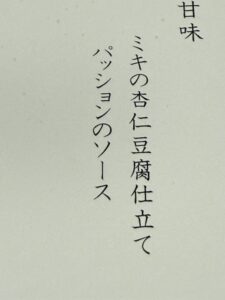 甘味
ミキの杏仁豆腐仕立て
パッションのソース